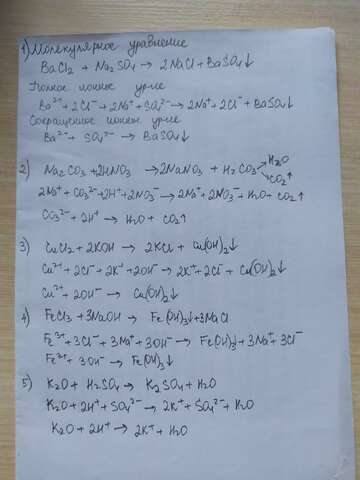 1) Молекулярное уравнение
BaCl₂ + Na₂SO₄ → 2NaCl + BaSO₄↓
Полное ионное ур-ие
Ba²⁺ + 2Cl⁻ + 2Na⁺ + SO₄²⁻ → 2Na⁺ + 2Cl⁻ + BaSO₄↓
Сокращенное ионн. ур-ие
Ba²⁺ + SO₄²⁻ → BaSO₄↓
2) Na₂CO₃ + 2HNO₃ → 2NaNO₃ + H₂CO₃ → H₂O
→ CO₂↑
2Na⁺ + CO₃²⁻ + 2H⁺ + 2NO₃⁻ → 2Na⁺ + 2NO₃⁻ + H₂O + CO₂↑
CO₃²⁻ + 2H⁺ → H₂O + CO₂↑
3) CuCl₂ + 2KOH → 2KCl + Cu(OH)₂↓
Cu²⁺ + 2Cl⁻ + 2K⁺ + 2OH⁻ → 2K⁺ + 2Cl⁻ + Cu(OH)₂↓
Cu²⁺ + 2OH⁻ → Cu(OH)₂↓
4) FeCl₃ + 3NaOH → Fe(OH)₃↓ + 3NaCl
Fe³⁺ + 3Cl⁻ + 3Na⁺ + 3OH⁻ → Fe(OH)₃↓ + 3Na⁺ + 3Cl⁻
Fe³⁺ + 3OH⁻ → Fe(OH)₃↓
5) K₂O + H₂SO₄ → K₂SO₄ + H₂O
K₂O + 2H⁺ + SO₄²⁻ → 2K⁺ + SO₄²⁻ + H₂O
K₂O + 2H⁺ → 2K⁺ + H₂O